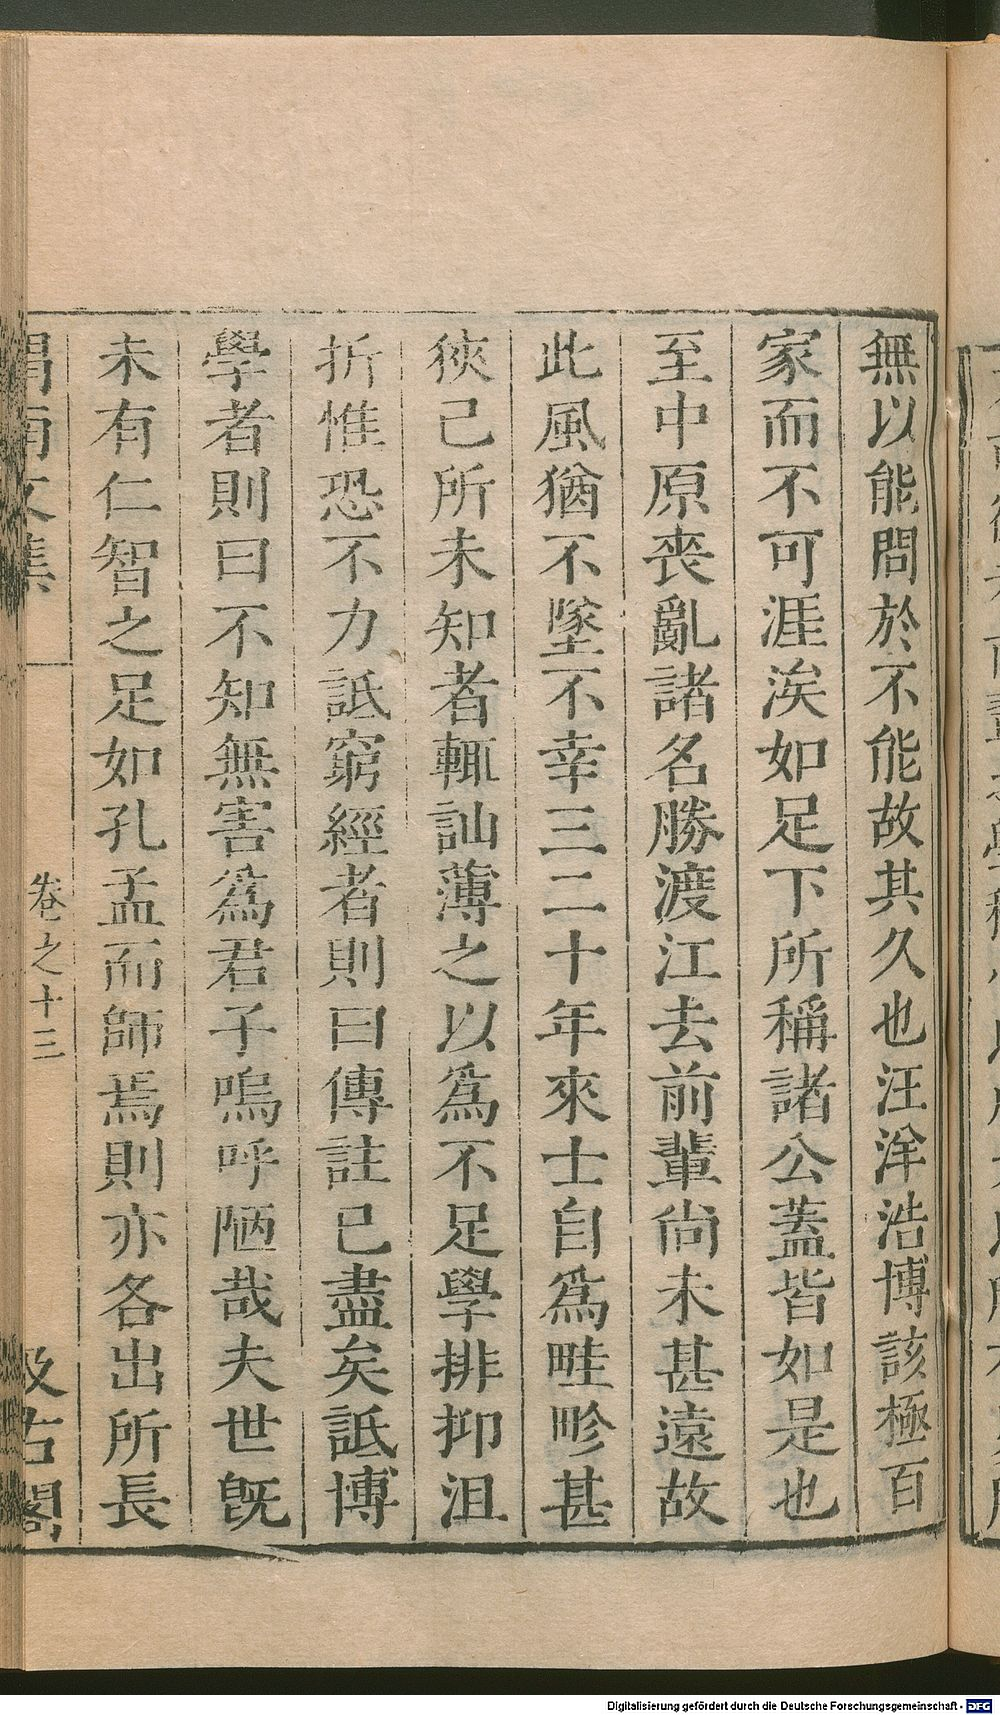 無以能問於不能故其久也汪洋浩博該極百
家而不可涯涘如足下所稱諸公蓋皆如是也
至中原喪亂諸名勝渡江去前輩尚未甚遠故
此風猶不墜不幸三二十年來士自為畦畛甚
狹己所未知者輒訕薄之以為不足學排抑沮
折惟恐不力詆窮經者則曰傳註已盡矣詆博
學者則曰不知無害為君子嗚呼陋哉夫世既
未有仁智之足如孔孟而師焉則亦各出所長
渭南文集 卷之十三 汲古閣
Digitalisierung gefördert durch die Deutsche Forschungsgemeinschaft - DFG